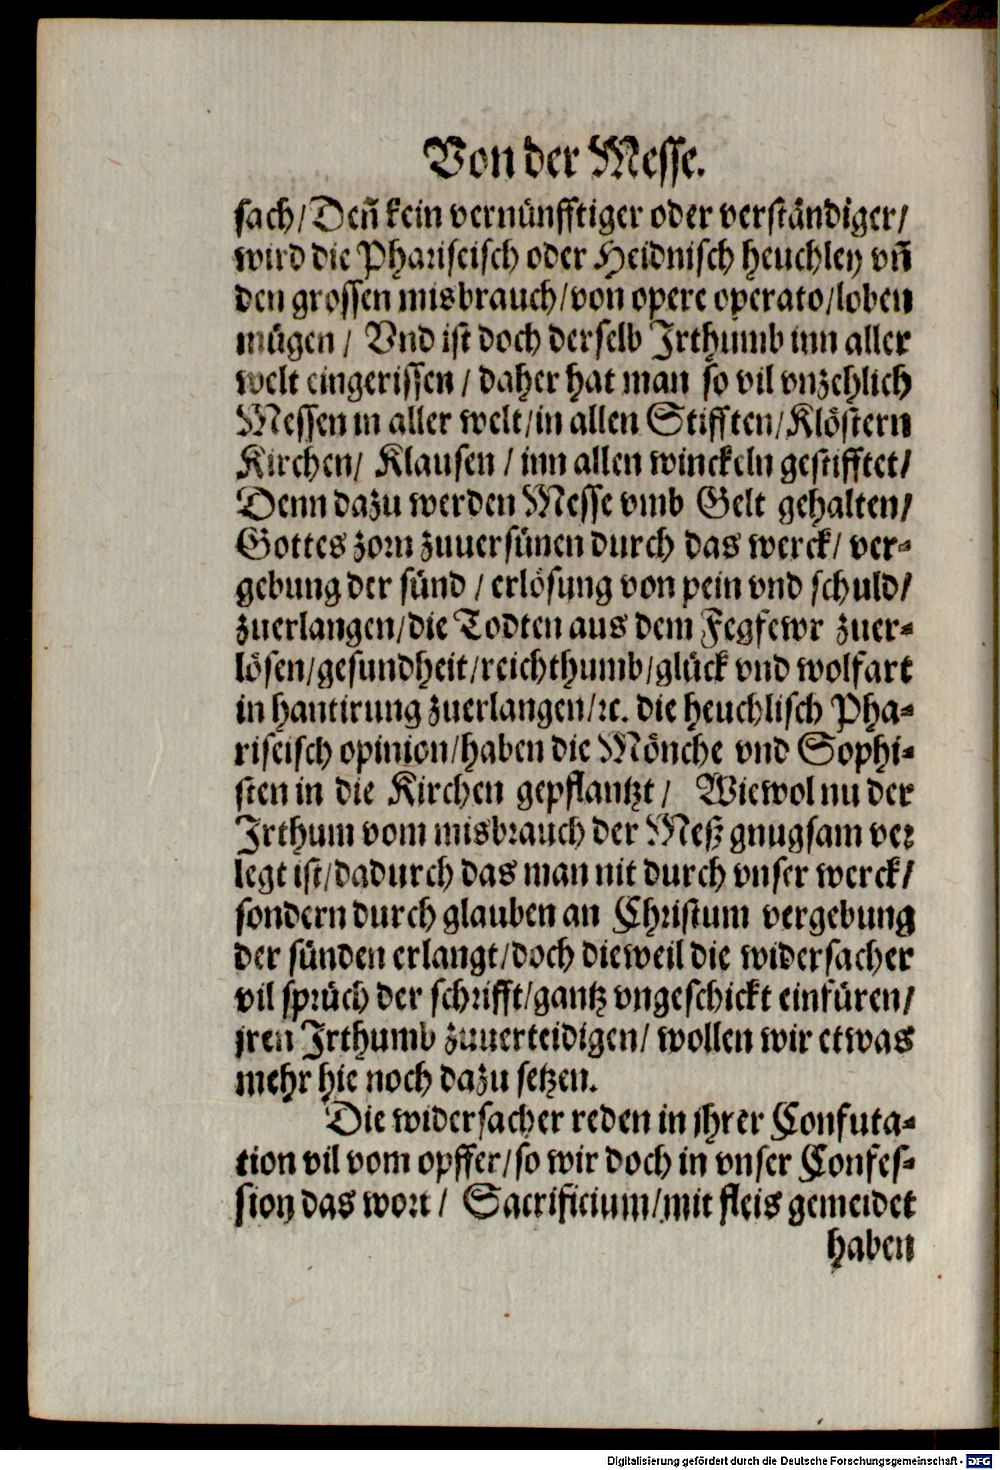 Von der Messe.
sach/Deñ kein vernünfftiger oder verständiger/
wird die Phariseisch oder Heidnisch heuchley vñ
den grossen misbrauch/von opere operato/loben
mügen/ Vnd ist doch derselb Irthumb inn aller
welt eingerissen/ daher hat man so vil vnzehlich
Messen in aller welt/in allen Stifften/Klöstern
Kirchen/ Klausen/ inn allen winckeln gestifftet/
Denn dazu werden Messe vmb Gelt gehalten/
Gottes zorn zuuersünen durch das werck/ ver-
gebung der sünd/ erlösung von pein vnd schuld/
zuerlangen/die Todten aus dem Fegfewr zuer-
lösen/gesundheit/reichthumb/glück vnd wolfart
in hantirung zuerlangen/ꝛc. die heuchlisch Pha-
riseisch opinion/haben die Mönche vnd Sophi-
sten in die Kirchen gepflantzt/ Wiewol nu der
Irthum vom misbrauch der Meß gnugsam ver
legt ist/dadurch das man nit durch vnser werck/
sondern durch glauben an Christum vergebung
der sünden erlangt/doch dieweil die widersacher
vil sprüch der schrifft/gantz vngeschickt einfüren/
jren Irthumb zuuerteidigen/ wollen wir etwas
mehr hie noch dazu setzen.
Die widersacher reden in jhrer Confuta-
tion vil vom opffer/so wir doch in vnser Confes-
sion das wort/ Sacrificium/mit fleis gemeidet
haben
Digitalisierung gefördert durch die Deutsche Forschungsgemeinschaft - DFG